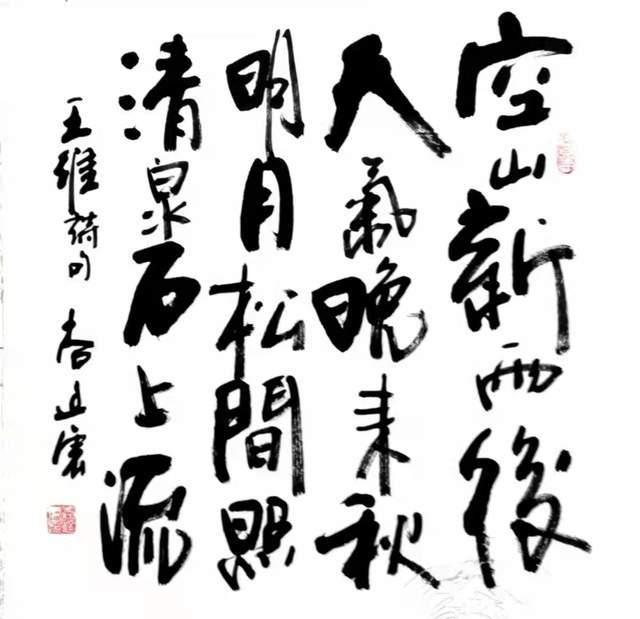 空山新雨後
天氣晚来秋
明月松間照
清泉石上流
王維詩句